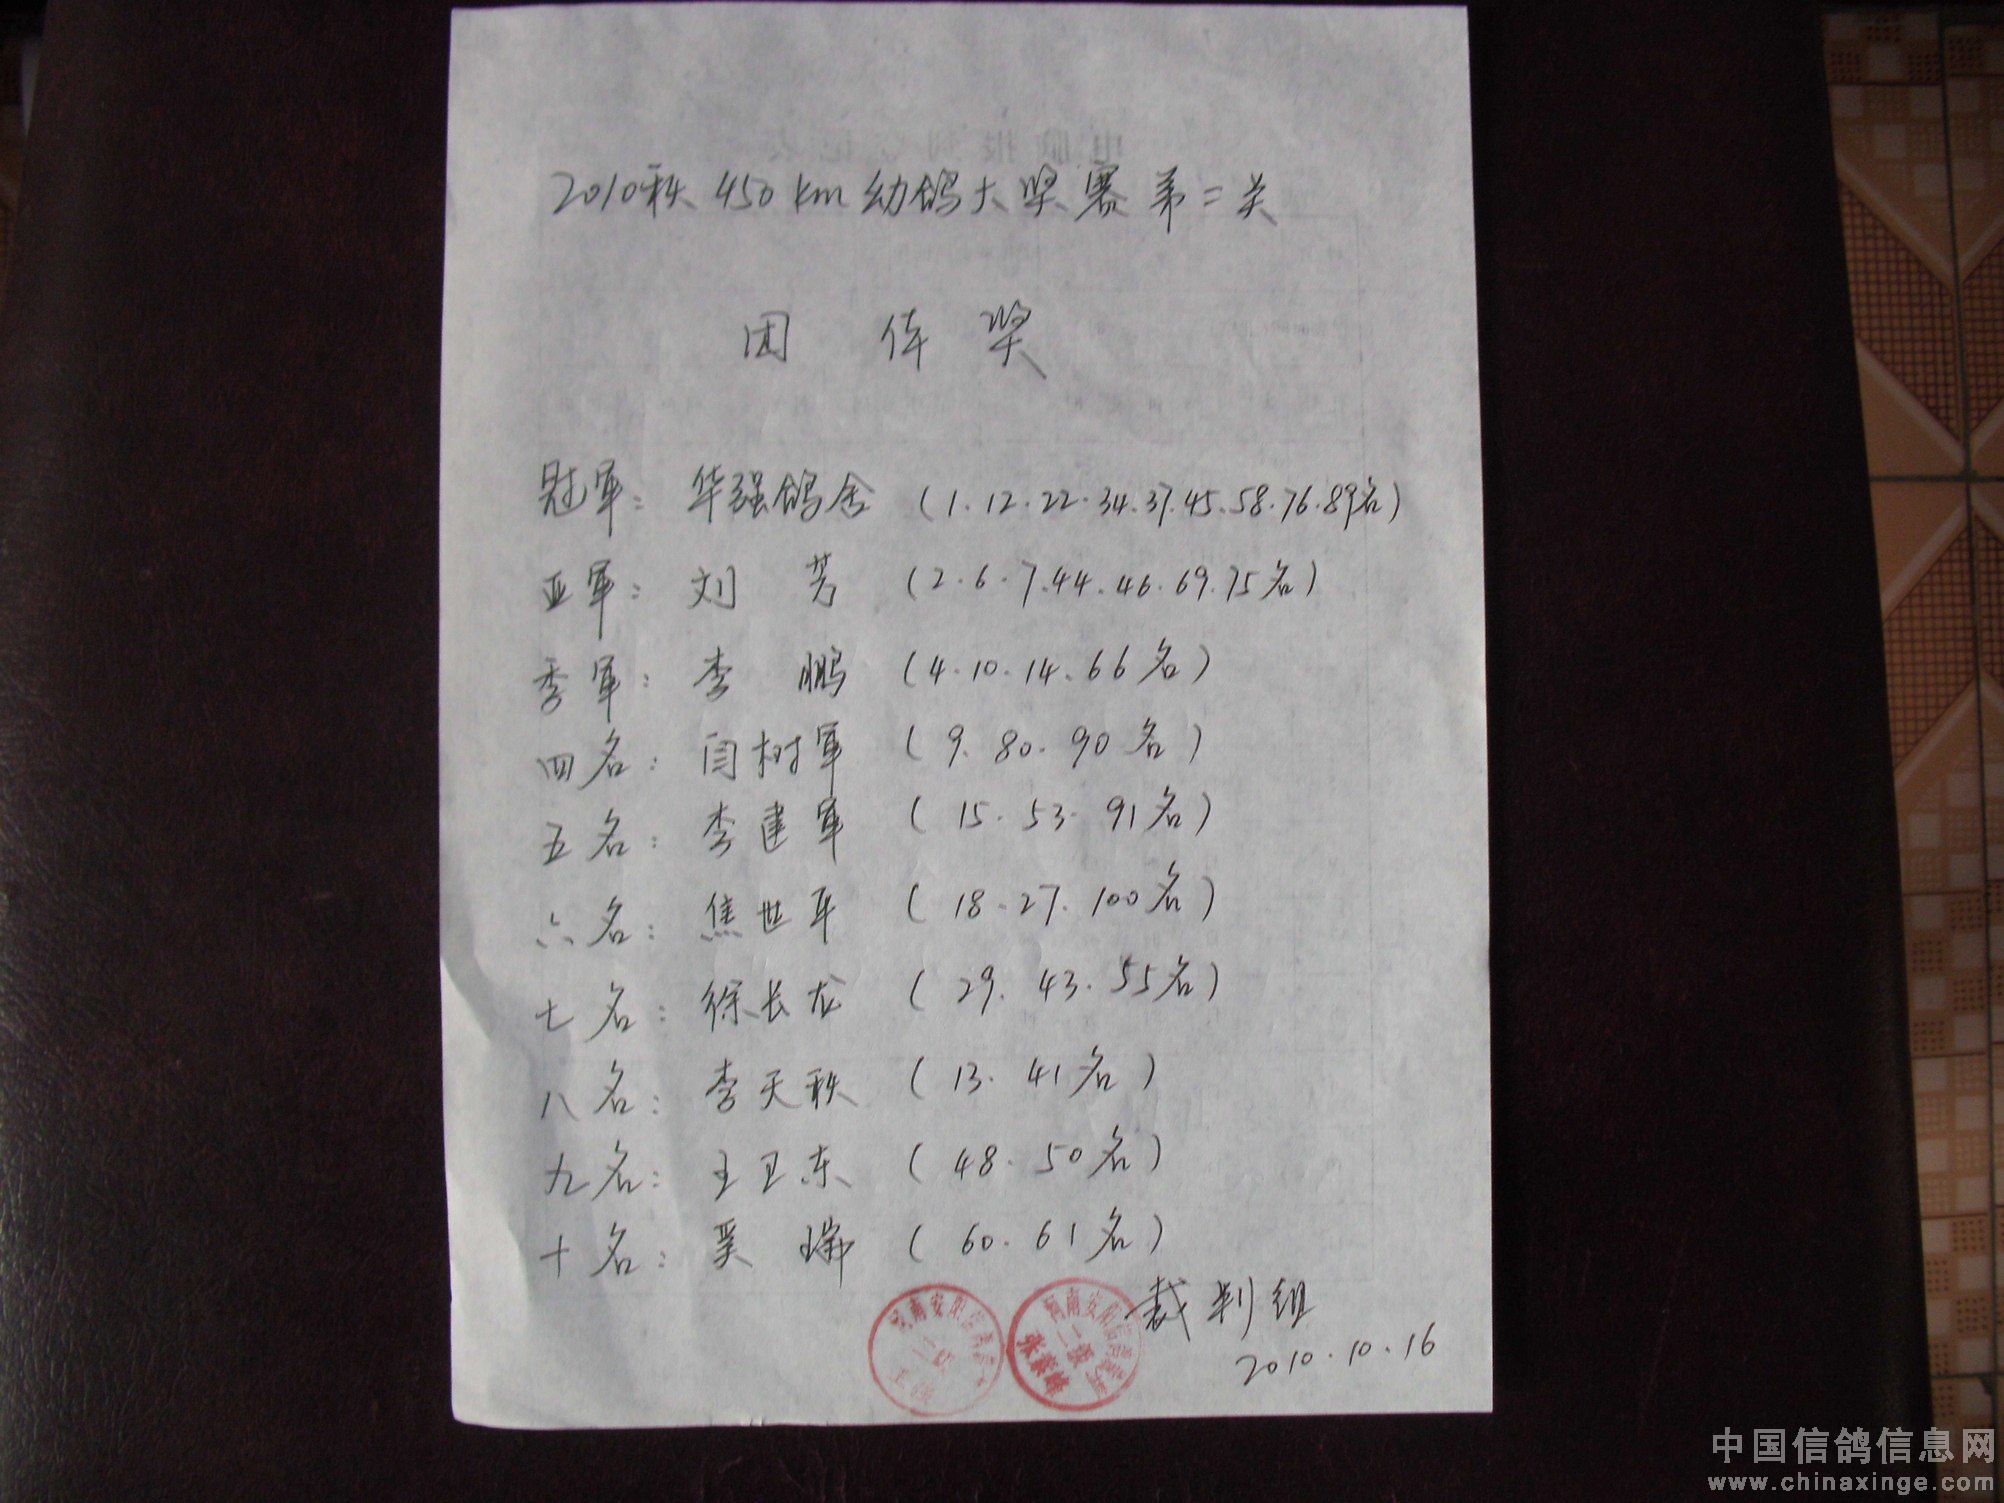 2010秋450km幼鸽大奖赛第二关
团体奖
冠军：华强鸽舍（1.12.22.34.37.45.58.76.89名）
亚军：刘芳（2.6.7.44.46.69.75名）
季军：李鹏（4.10.14.66名）
四名：闫树军（9.80.90名）
五名：李建军（15.53.91名）
六名：焦世军（18.27.100名）
七名：徐长龙（29.43.55名）
八名：李天秋（13.41名）
九名：王卫东（48.50名）
十名：吴瑞（60.61名）
裁判组
2010.10.16
河南安阳信鸽 二级
河南安阳信鸽 二级
中国信鸽信息网
www.chinaxinge.com